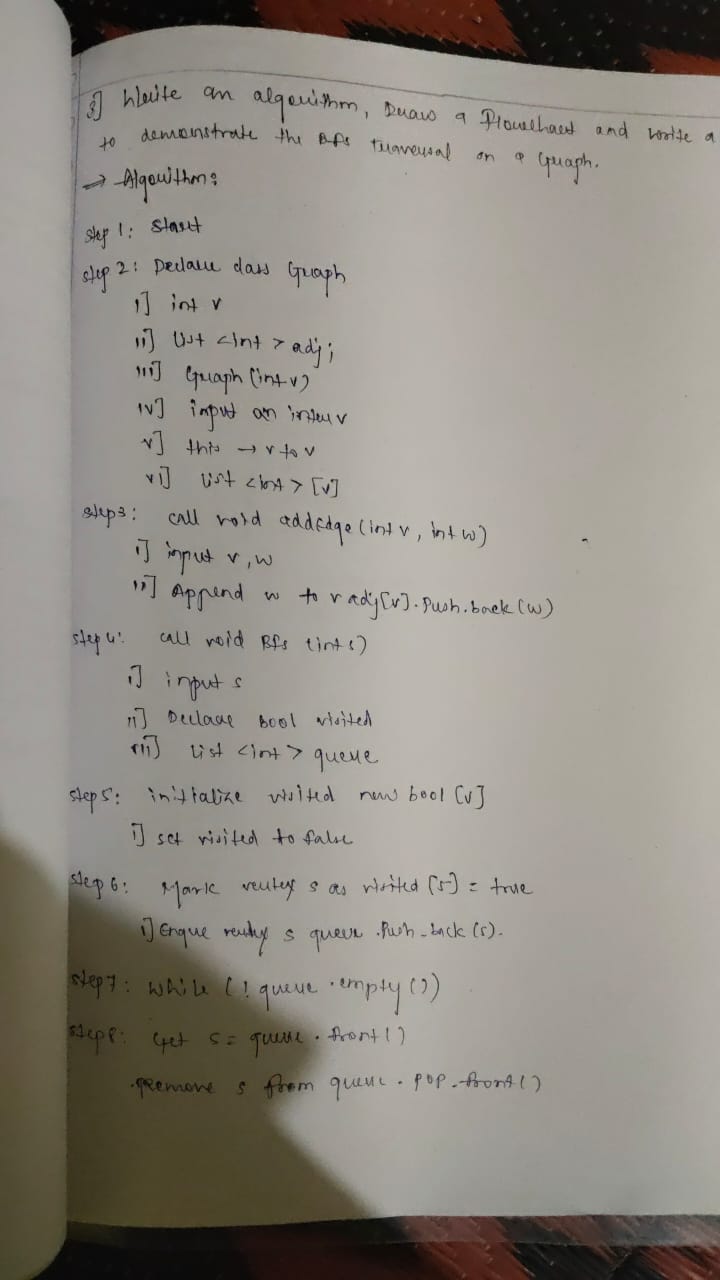 8] Write an algorithm, Draw a Flowchart and write a
to demonstrate the BFS traversal on a Graph.
→ Algorithm:
Step 1: Start
Step 2: Declare class Graph
i] int v
ii] List <int> adj;
iii] Graph (int v)
iv] input an v
v] this → v to v
vi] List <int> [v]
Step3: call void addEdge (int v, int w)
i] input v, w
ii] Append w to v adj[v]. Push.back (w)
Step 4: call void BFS (int s)
i] input s
ii] Declare Bool visited
iii] List <int> queue
Step 5: initialize visited new bool [v]
i] set visited to false
Step 6: Mark vertex s as visited [s] = true
i] Enque vertex s queue .Push-back (s).
Step 7: while (! queue .empty ())
Step 8: Get s = queue . front ()
.Remove s from queue . POP-front ()